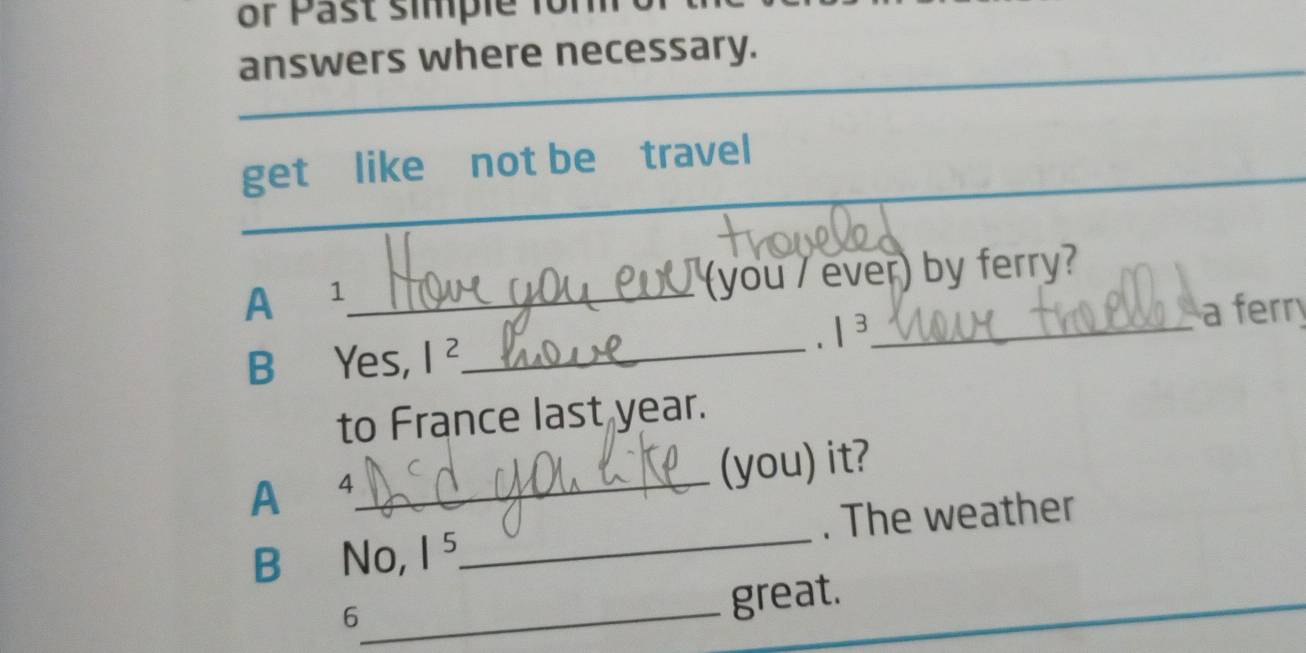 or Past simple form of the verbs in
answers where necessary.
get like not be travel
traveled
A 1 Have you ever (you / ever) by ferry?
B Yes, I 2 have . I 3 have travelled a ferry
to France last year.
A 4 Did you like (you) it?
B No, I 5 . The weather
6 great.